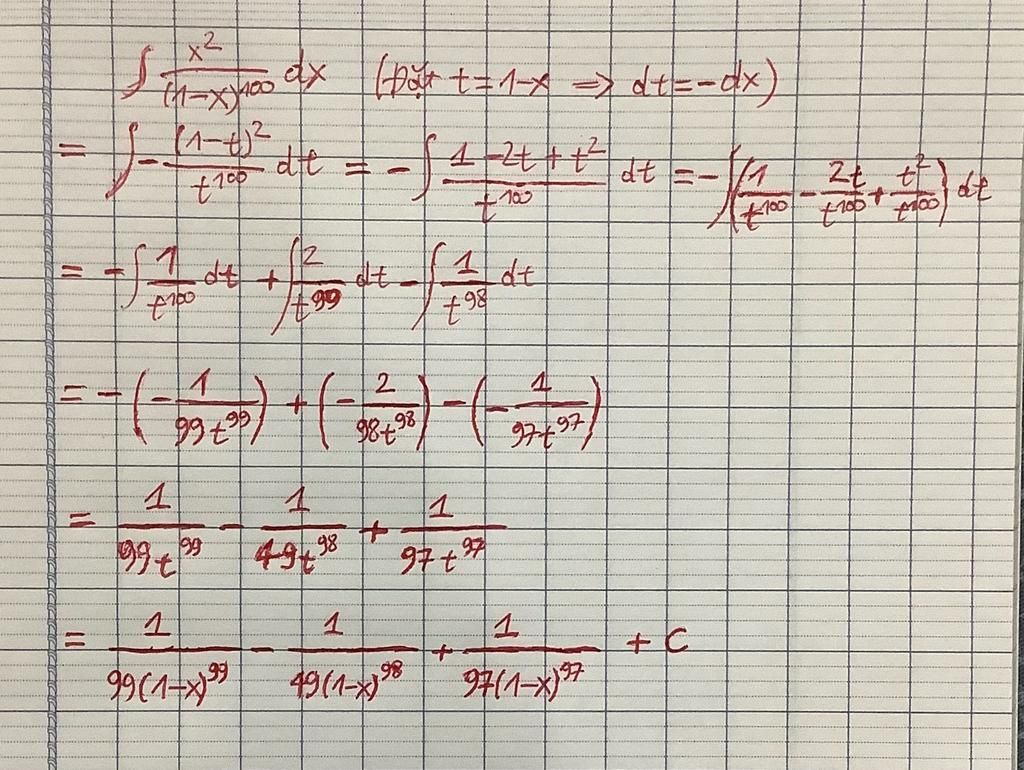 ∫ x²/(1-x)¹⁰⁰ dx (Đặt t = 1-x => dt = -dx)
= ∫ - (1-t)²/t¹⁰⁰ dt = - ∫ (1 - 2t + t²)/t¹⁰⁰ dt = - ∫ (1/t¹⁰⁰ - 2t/t¹⁰⁰ + t²/t¹⁰⁰) dt
= - ∫ 1/t¹⁰⁰ dt + ∫ 2/t⁹⁹ dt - ∫ 1/t⁹⁸ dt
= - (- 1/(99t⁹⁹)) + (- 2/(98t⁹⁸)) - (- 1/(97t⁹⁷))
= 1/(99t⁹⁹) - 1/(49t⁹⁸) + 1/(97t⁹⁷)
= 1/(99(1-x)⁹⁹) - 1/(49(1-x)⁹⁸) + 1/(97(1-x)⁹⁷) + C